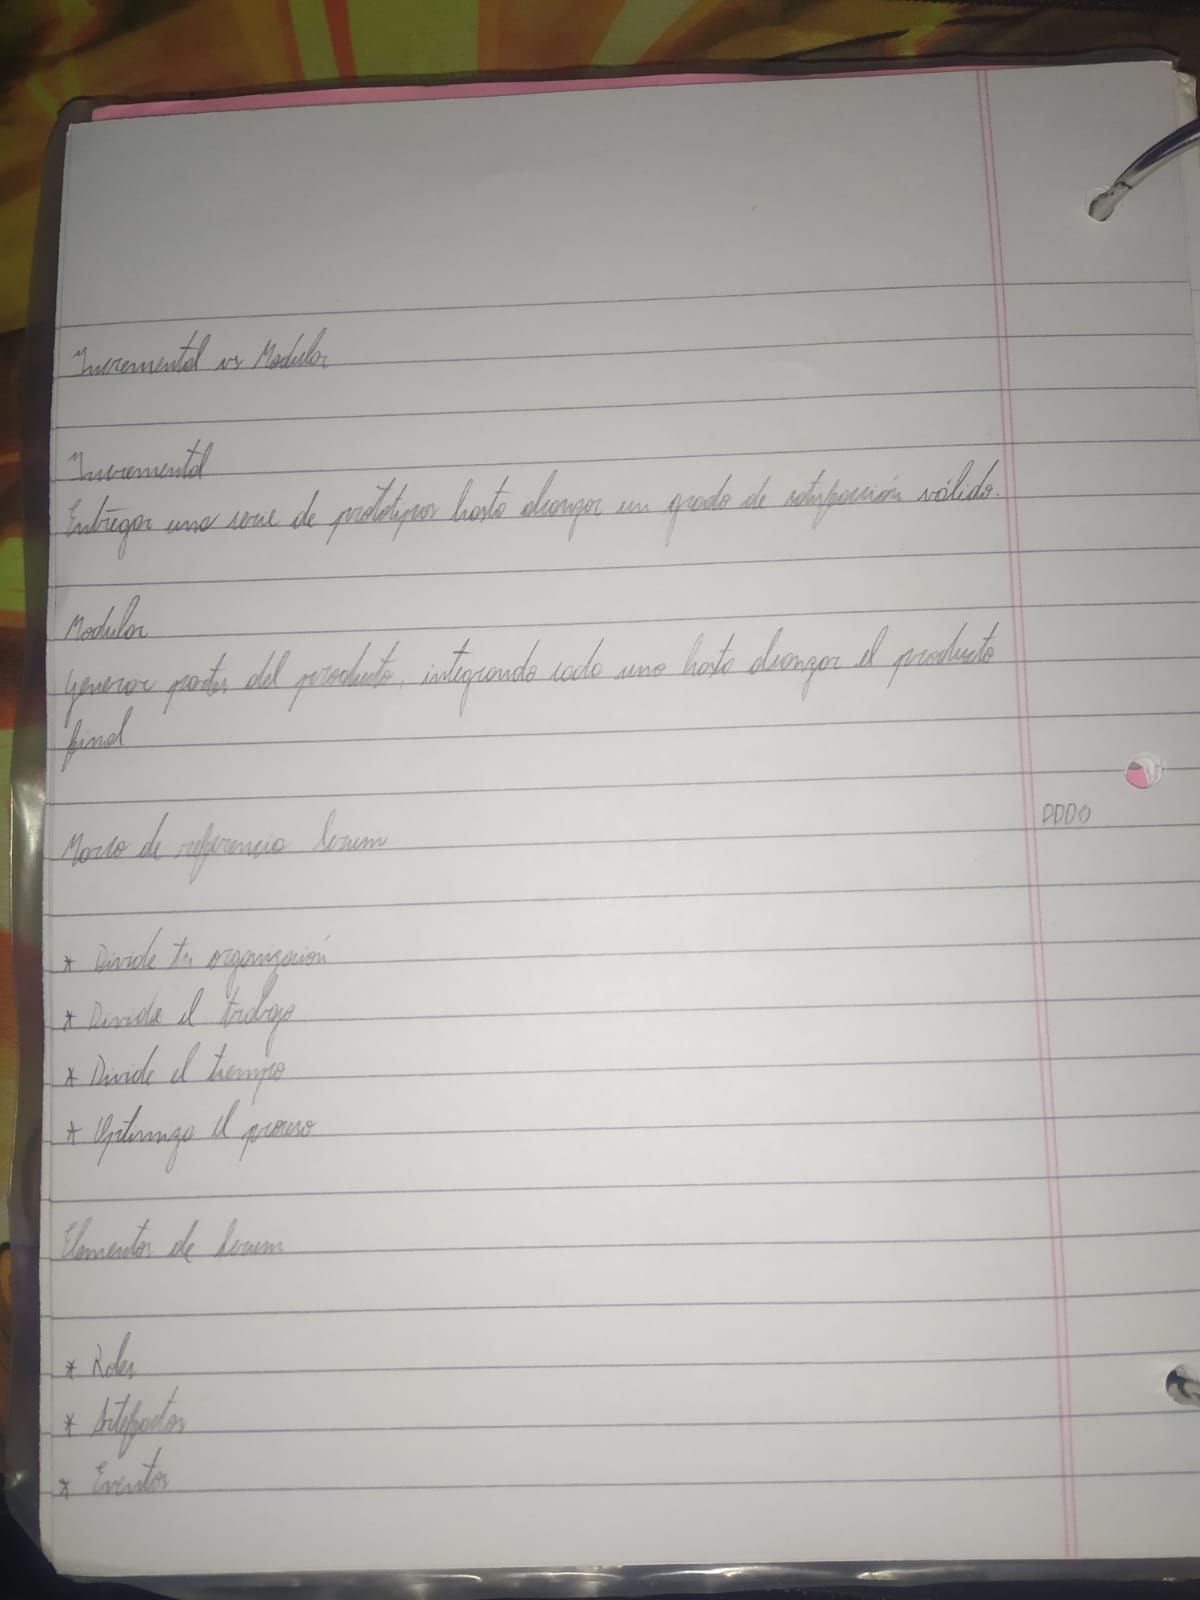 Incremental vs Modular
Incremental
Entregar una serie de prototipos hasta alcanzar un grado de satisfacción válido.
Modular
Generar partes del producto, integrando cada uno hasta alcanzar el producto
final
Marco de referencia Scrum
DDDO
* Divide tu organización
* Divide el trabajo
* Divide el tiempo
* Optimiza el proceso
Elementos de Scrum
* Roles
* Artefactos
* Eventos